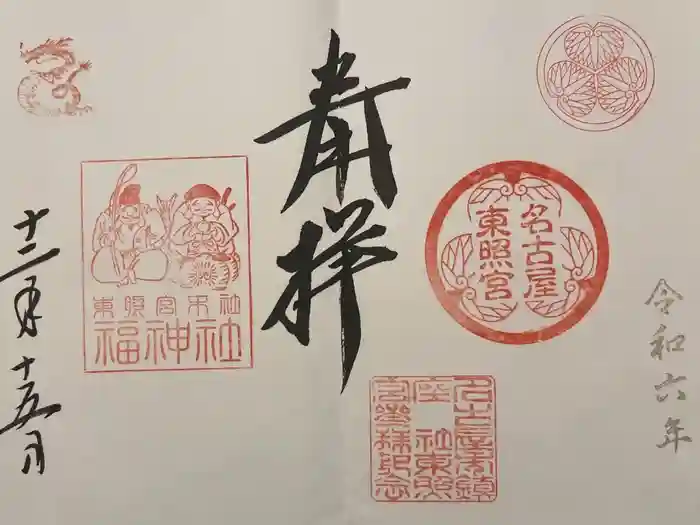 令和六年
名古屋
東照宮
名古屋市鎮
座 社東照
宮参拝記念
奉拝
東照宮末社
福神社
十二月十五日